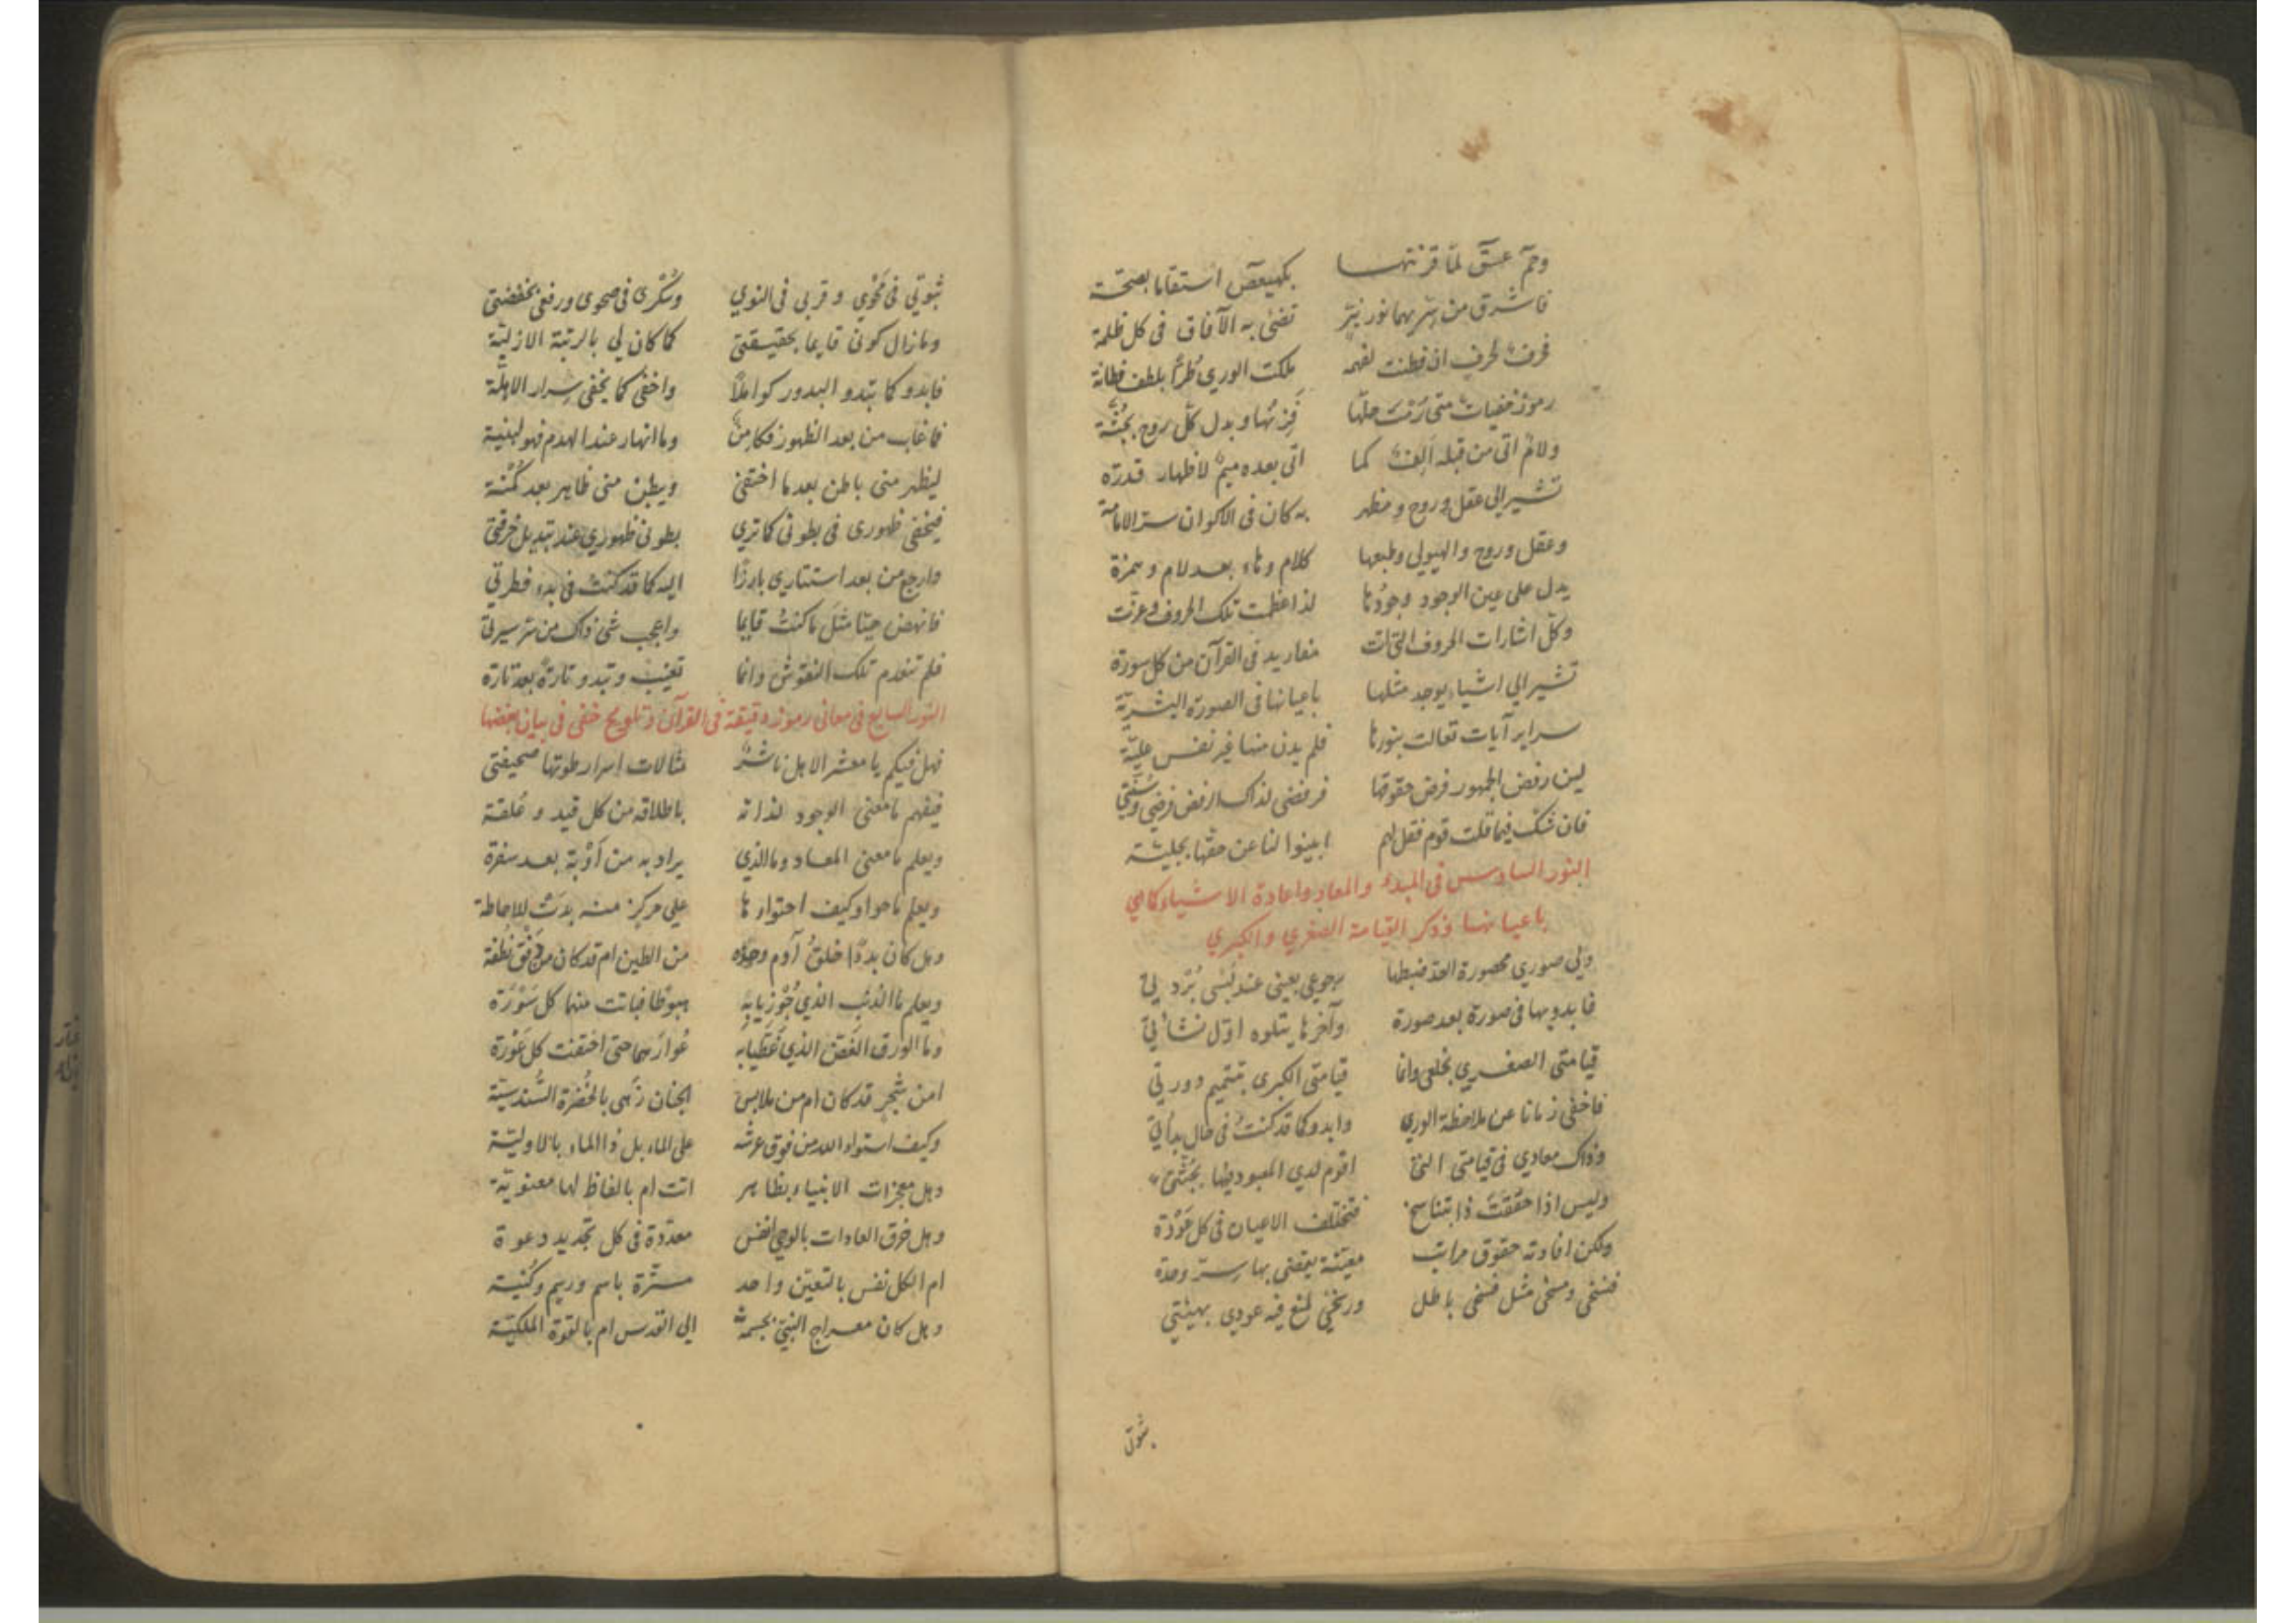 وحمٓ عسٓقٓ لمّا قرنتهــــا بكهيعصٓ استقاما بصحّة
فاشرق من سِرّيهما نور نيّرٍ تضئ به الآفاق فى كل ظلمة
فحرفٌ لحرفٍ ان فطنت لفهمه ملكت الوري طُرّاً بلطف فطانة
رموز خفيات متى رُمْتَ حلّها فَزِنْها وبدل كلّ روح بجُثّة
ولامٌ اتى من قبله اَلِفٌ كما اتى بعده ميمٌ لاظهار قدرة
تشير الى عقل وروح ومظهر به كان فى الاكوان ستر الامامة
وعقل وروح والهيولي وطبعها كلام وهاء بعد لام وهمزة
يدل على عين الوجود وجودُها لذا عظمت تلك الحروف وعزّت
وكلّ اشارات الحروف التي اتت مفاريد فى القرآن من كل سورة
تشير الي اشياء يوجد مثلها باعيانها فى الصورة البشريّة
سراير آيات تعالت بنورها فلم يدن منها غير نفس عليّة
لين رفض الجمهور فرض حقوقها فرفضى لذاك ارفض فرضي وسُنّتي
فان شكّ فيما قلت قوم فقل لهم ابينوا لنا عن حقّها بجليّة
النور السادس فى المبدء والمعاد واعادة الاشياء كما هي
باعيانها وذكر القيامة الصغري والكبري
ولي صوري محصورة العدّ ضبطها رجوعي بعينى عند لُبْسى بُرْدتي
فابدو بها فى صورة بعد صورة وآخرها يتلوه اوّل نشأتي
قيامتى الصغري بخلعى وانما قيامتى الكبرى بتتميم دورتي
فاخفى زمانا عن ملاحظة الوري وابدو كما قد كنتُ فى حال بدأتي
وذاك معادي فى قيامتى التى اقوم لدي المعبود فيها بجُثّتى
وليس اذا حقّقتَ ذا بتناسخ فتختلف الاعيان فى كل عَوْدة
ولكن افادته حقوق مراتب معيّنة يقضى بها سِرّ وحدة
فنسخى ومسخى مثل فسخى باطل ورسخى لمنع فيه عودى بهيئتي
ثبوتي
ثبوتي فى مَحْوي وقربى فى النوي وسُكرى فى صحوى ورفعى بخفضتى
وما زال كونى قايما بحقيقتى كما كان لي بالرتبة الازليّة
فابدو كما تبدو البدور كواملاً واخفى كما يخفى سِرار الاهلّة
فما غاب من بعد الظهور فكامِنٌ وما انهار عند الهدم فهو لبنية
ليظهر منى باطن بعد ما اختفى ويبطن منى ظاهر بعد كُمْنة
فيخفى ظهورى فى بطونى كما تري بطونى ظهوري عند تبديل خرقتى
وارجع من بعد استتاري بارزًا اليه كما قد كنتُ فى بدء فطرتي
فانهض حيّا مثلَ ما كنتُ قايما واعجب شئ ذاك من سرّ سيرتي
فلم تنعدم تلك النقوش وانما تغيب وتبدو تارةً بعد تارة
النور السابع فى معانى رموز دقيقة فى القرآن وتلويح خفى فى بيان بعضها
فهل فيكم يا معشر الاهل ناشرٌ مثالات اسرار طوتها صحيفتى
فيفهم ما معنى الوجود لذاته باطلاقه من كل قيد وعُلقة
ويعلم ما معنى المعاد وما الذي يراد به من أوْبة بعد سفرة
ويعلم ما حوا وكيف احتوار ها على مركز منه بدت للاحاطة
وهل كان بدءًا خلقُ آدم وحده من الطين ام قد كان من دَفْق نُطْفة
ويعلم ما الذنب الذي جُوْزيا به هبوطا فباتت منها كل سَوْرَة
وما الورق الغَضّ الذي غَطّيا به عُوارَهما حتى اختفت كل عَوْرة
امن شجرٍ قد كان ام من ملابس الجنان زَهى بالخُضْرة السُّندسيّة
وكيف استواء الله من فوق عرشه على الماء بل ذا الماء بالاوليّة
وهل معجزات الانبياء بظاهر اتت ام بالفاظ لها معنويّة
وهل خرق العادات بالوحي انفس معدّدة فى كل تجديد دعوة
ام الكل نفس بالتعيّن واحد مستّرة باسم ورسم وكُنية
وهل كان معراج النبيّ بجسمه الي القدس ام بالقوة الملكيّة